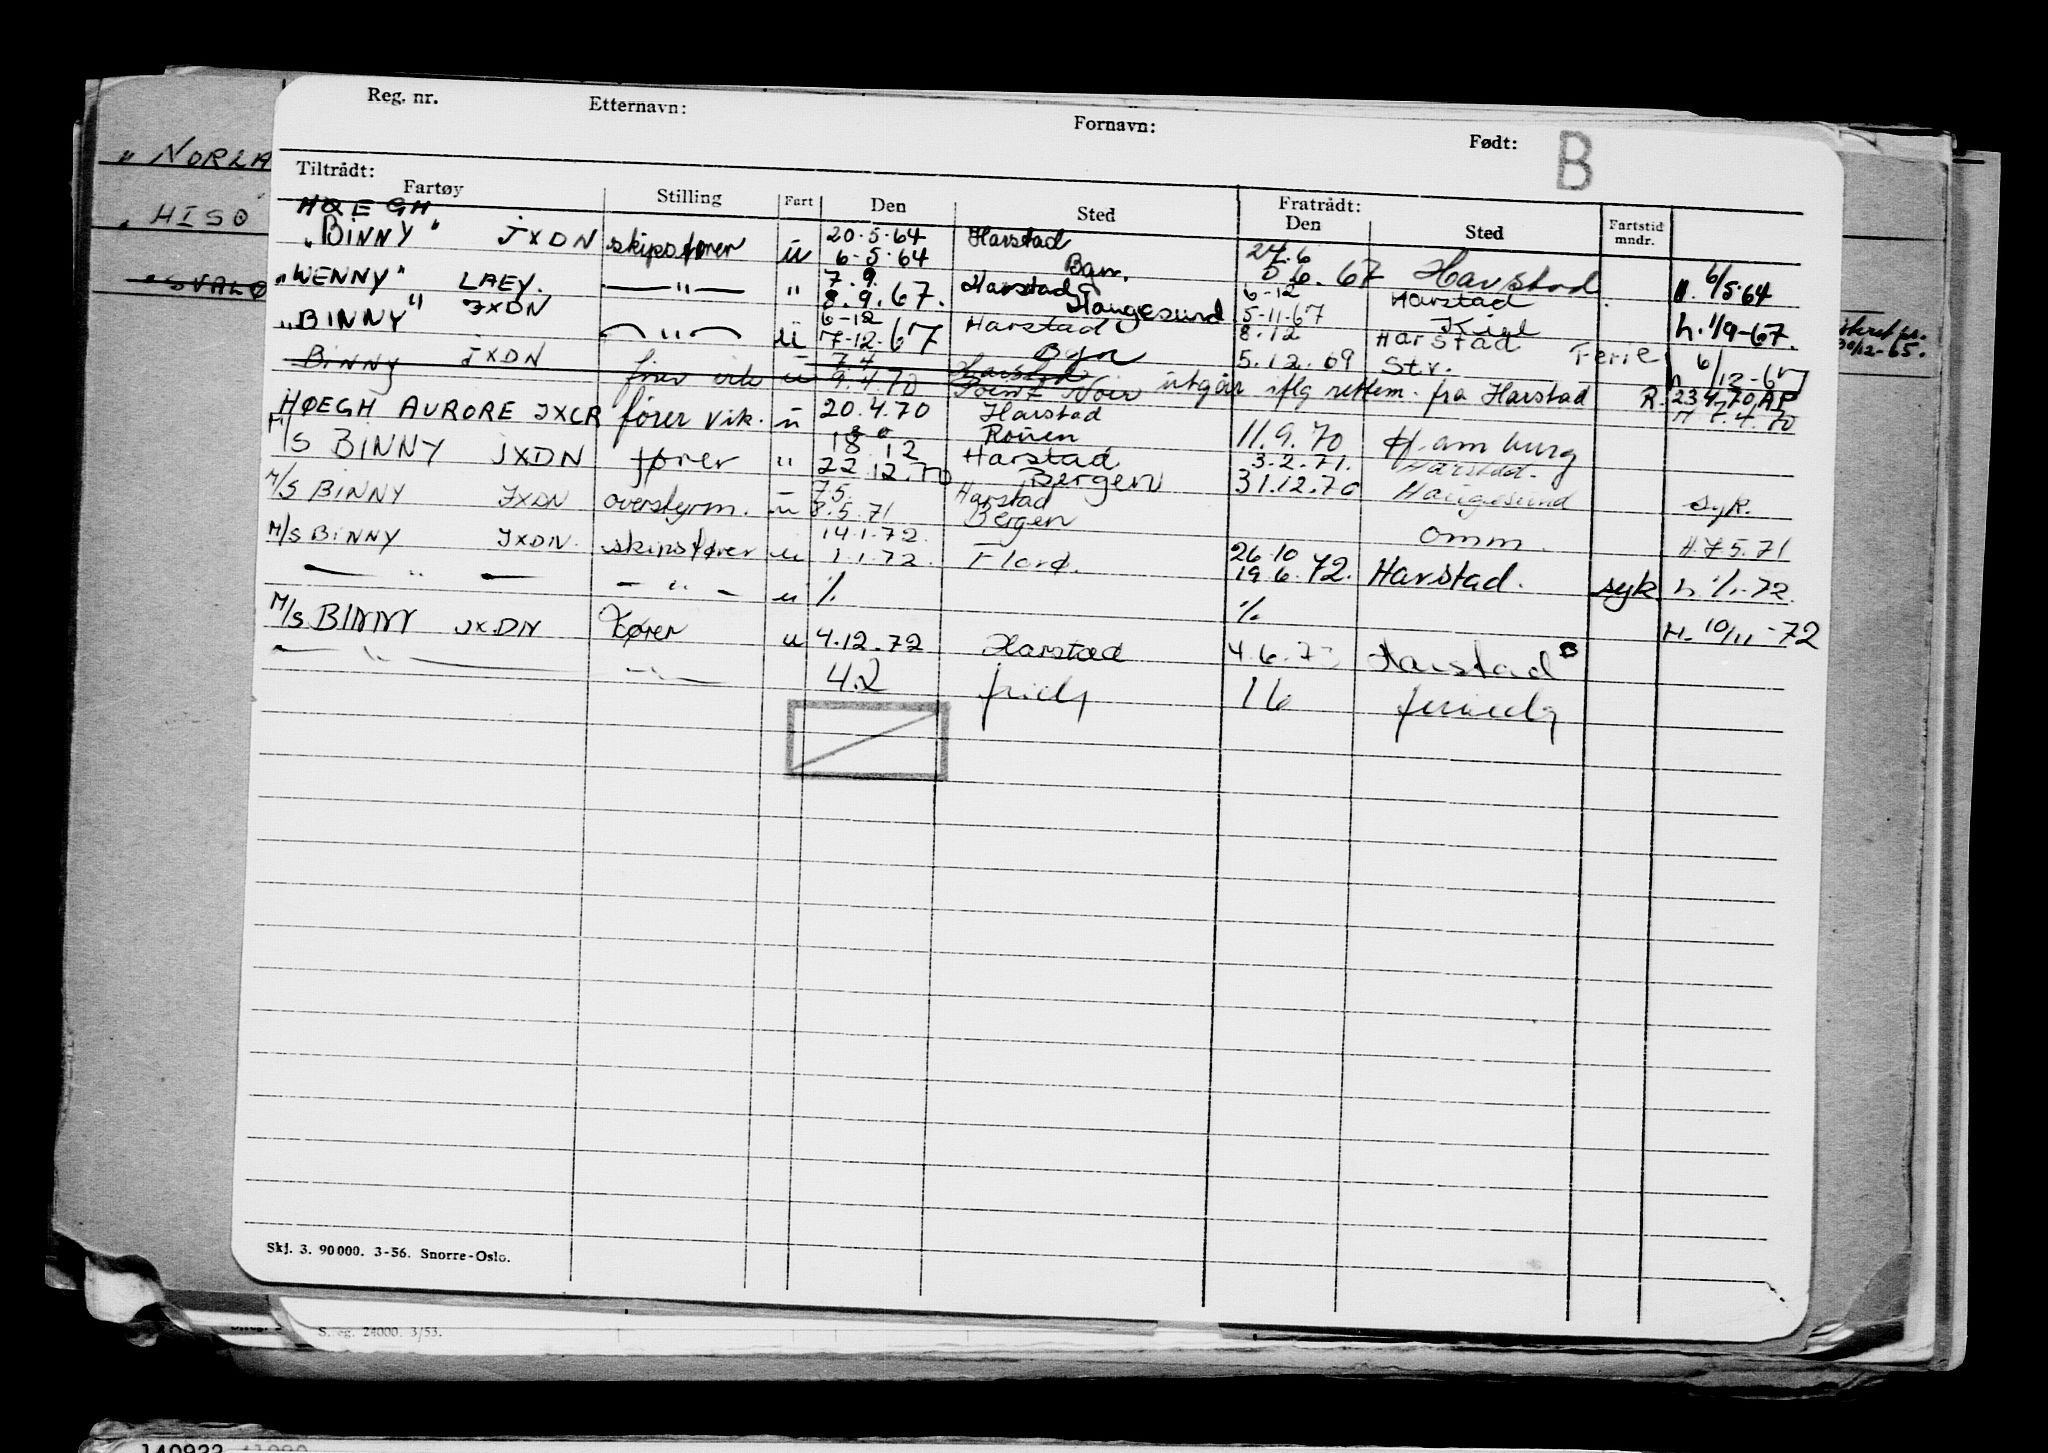 Reg. nr. Etternavn: Fornavn: Født: B
Tiltrådt: Fratrådt:
Fartøy Stilling Fart Den Sted Den Sted Fartstid mndr.
" NORLA
" HISØ
" SVALØ
HØEGH 20.5.64 Harstad 24.6
"BINNY" JXDN skipsfører u 6.5.64 6.67 Harstad 6/5.64
7.9. Harstad 6-12 Harstad
"WENNY" LAEY. — " — " 8.9.67. Haugesund 5-11-67 Kiel h. 1/9-67.
6-12 Harstad 8.12 Harstad
"BINNY" JXDN — " — u 7-12.67 5.12.69 Str. Ferie 6/12-67
7.4 Harstad
Binny JXDN fører vik u 9.4.70 Point Noir utgår iflg rettem. fra Harstad R. 23.4.70 AP
20.4.70 Harstad 7.4.70
HØEGH AURORE JXCR fører vik. u Rouen 11.9.70 Hamburg
18 12 Harstad 3.2.71. Harstad.
M/S BINNY JXDN fører " 22.12.70 Bergen 31.12.70 Haugesund syk.
7.5. Harstad
M/S BINNY JXDN overstyrm. u 8.5.71 Bergen omm. H.7.5.71
14.1.72. 26.10
M/S BINNY JXDN. skipsfører u 1.1.72. Florø. 19.6.72. Harstad. syk h. 1/1-72.
— " — — " — u %. %. H. 10/11-72
M/S BINNY JXDN Fører u 4.12.72 Harstad 4.6.7 Harstad
— " — — " — 42 16
Skj. 3. 90000. 3-56. Snorre-Oslo.
S. eg. 24000. 3/53.
140922